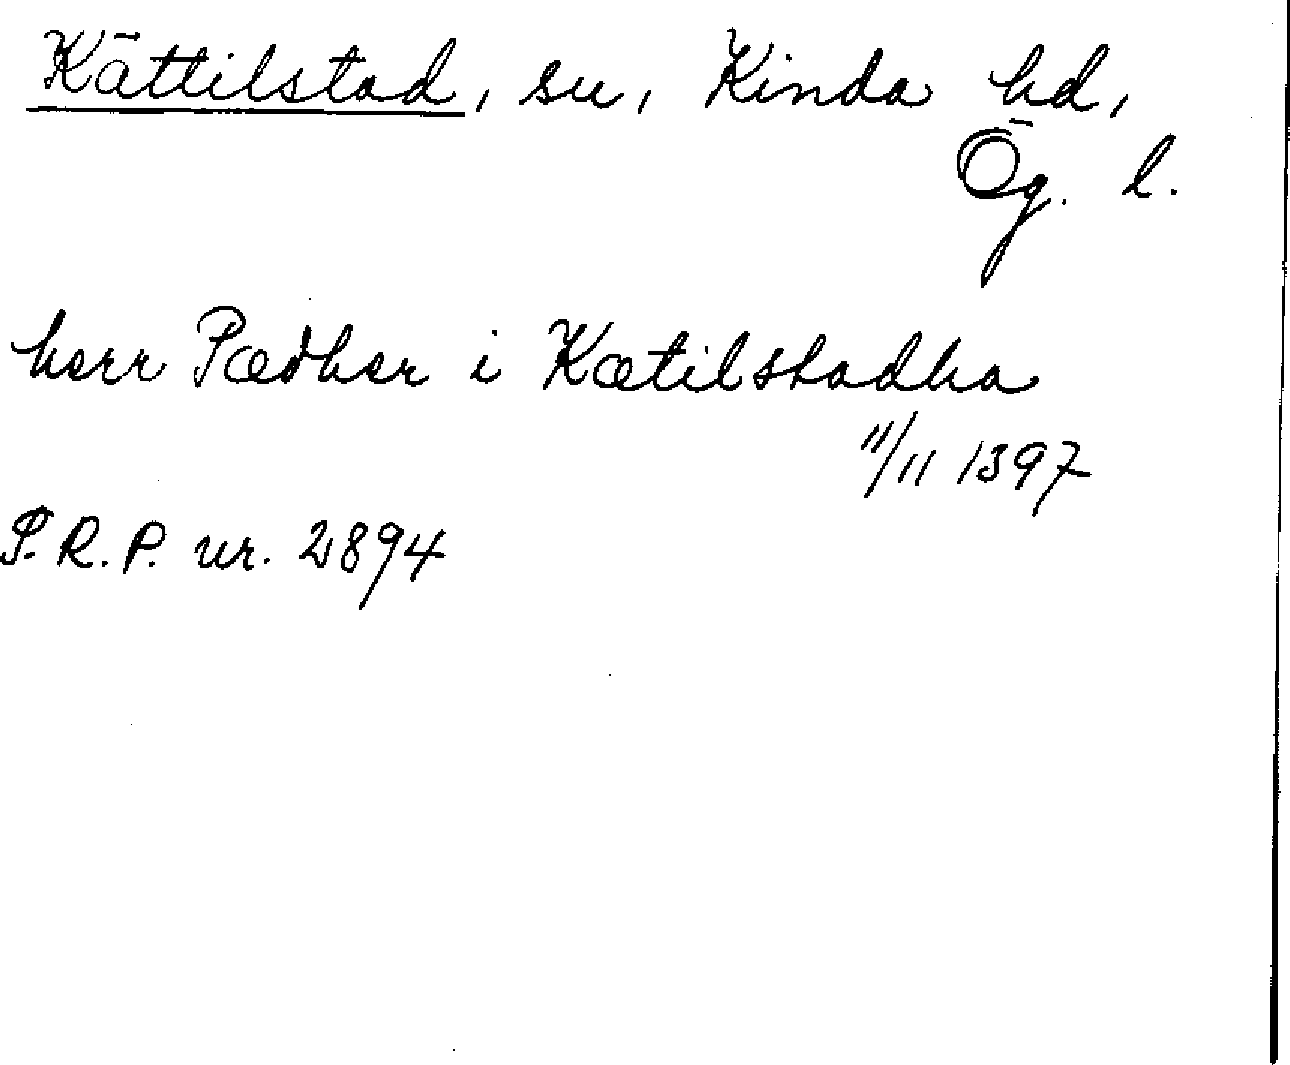 Kättilstad, sn, Kinda hd,
Ög. l.
herr Pædher i Kætilstadha
11/11 1397
P.R.P. nr. 2894